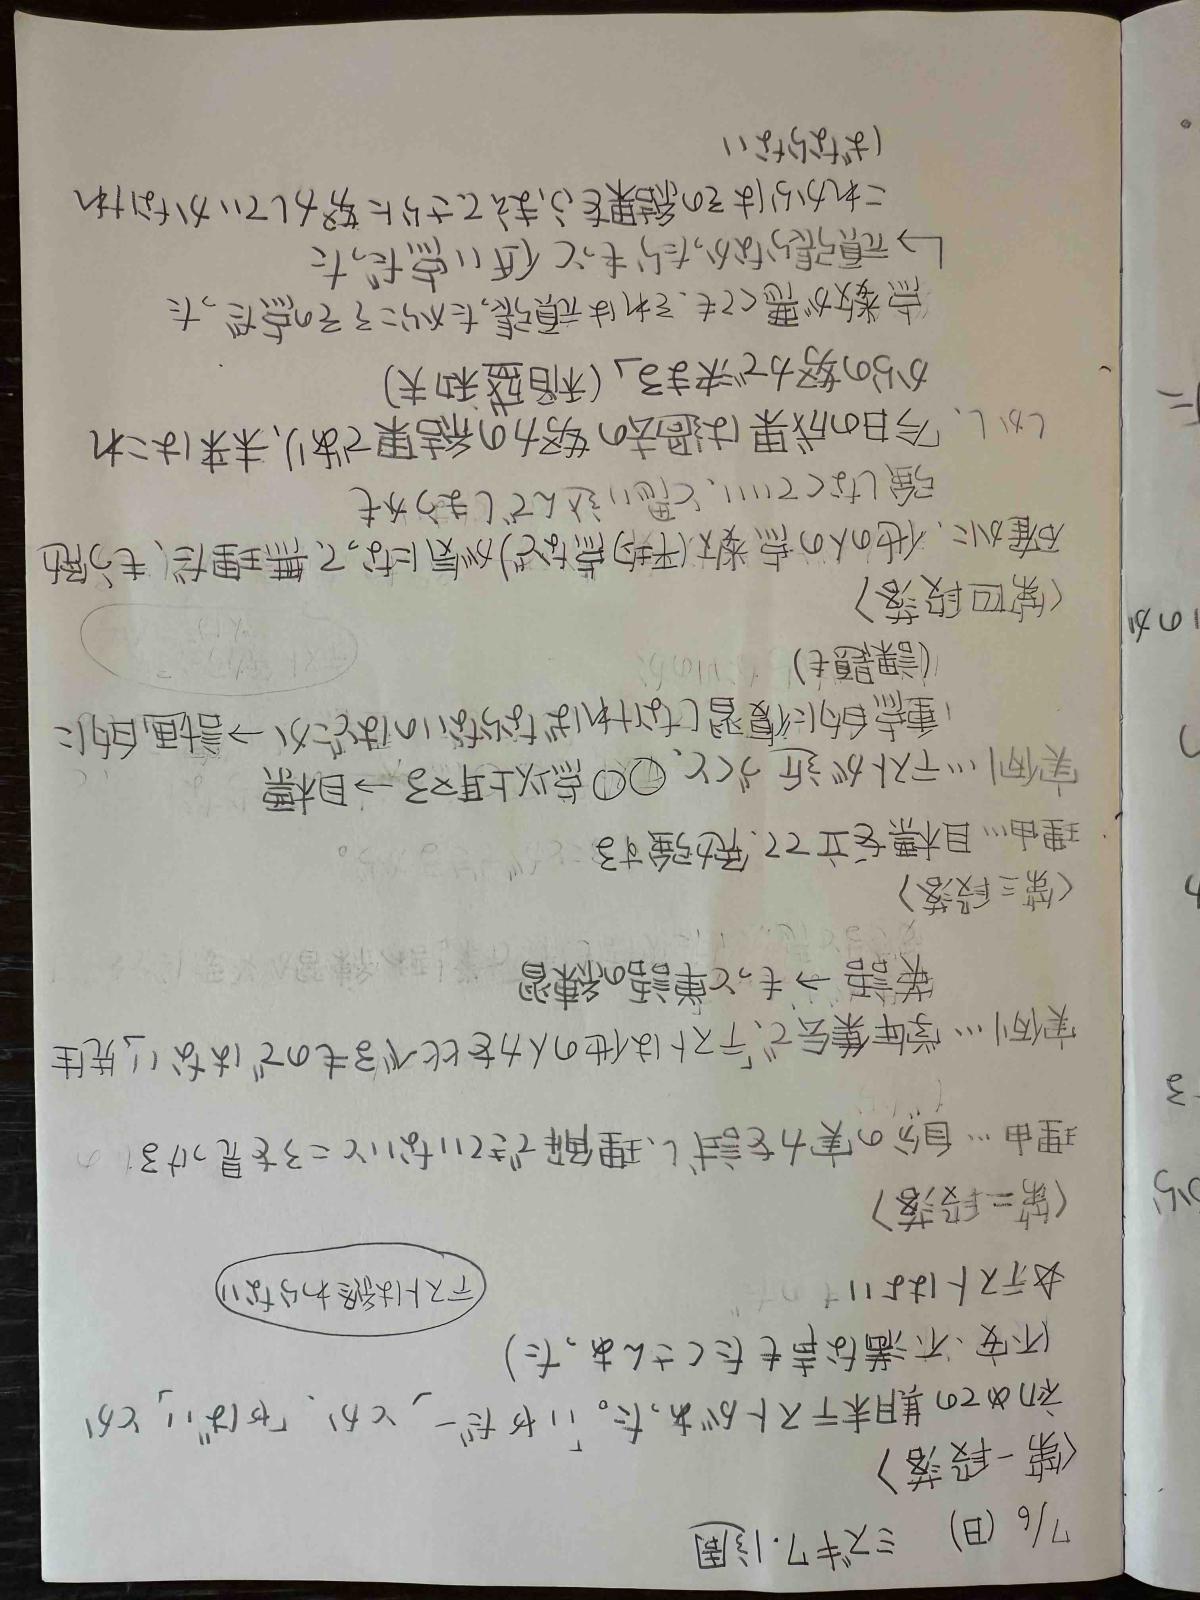 7/6 (日) ミズキ7.1週
〈第一段落〉
初めての期末テストがあった。「いやだー」とか、「やばい」とか
(不安、不満な声もたくさんあった)
☆テストはよい
テストは終わらない
〈第二段落〉
理由…自分の実力を試し、理解できていないところを見つける
実例…学年集会で、「テストは他の人力を比べるものではない」先生
英語→もっと単語の練習
〈第三段落〉
理由…目標を立てて、勉強する
実例…テストが近づくと、〇〇点以上取る→目標
重点的に復習しなければならないのはどこか→計画的に
(課題も)
〈第四段落〉
確かに、他の人の点数(平均点など)が気になって、無理だ、もう勉
強しなくていい、と思い込んでしまうかも
しかし、「今日の成果は過去の努力の結果であり、未来はこれ
からの努力で決まる」(稲盛和夫)
点数が悪くても、それは頑張ったからこその点だった
↳頑張らなかったらもっと低い点だった
これからはその結果をふまえてさらに努力していかなけれ
ばならない